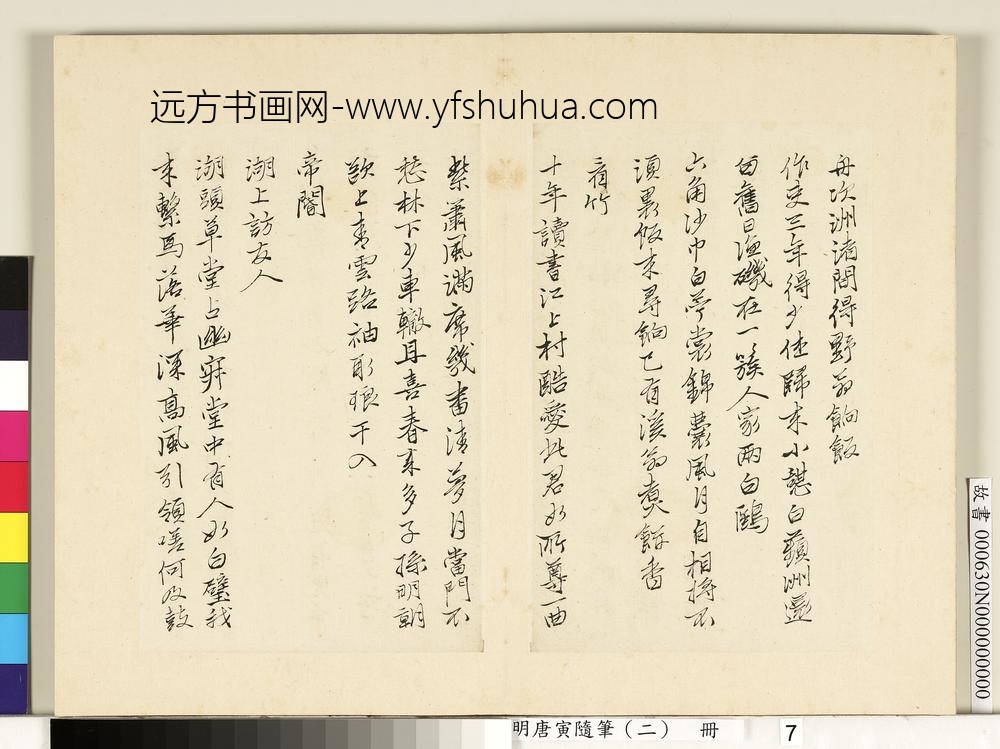 远方书画网-www.yfshuhua.com
舟次洲渚間得野翁餉飯
作吏三年得少住歸來小憩白蘋洲還
留舊日漁磯在一簇人家兩白鷗
六角沙巾白苧裳錦囊風月自相將不
須裹飯來尋餉已有溪翁煮餅香
有竹
十年讀書江上村酷愛此君如所尊一曲
紫簫風滿席幾番清夢月當門不
愁林下少車轍且喜春來多子孫明朝
欲上青雲路袖取琅玕入
帝閽
湖上訪友人
湖頭草堂占幽寂堂中有人如白璧我
來繫馬落華深高風引領嗟何及鼓
故書 000630N000000000
明唐寅隨筆(二) 冊 7